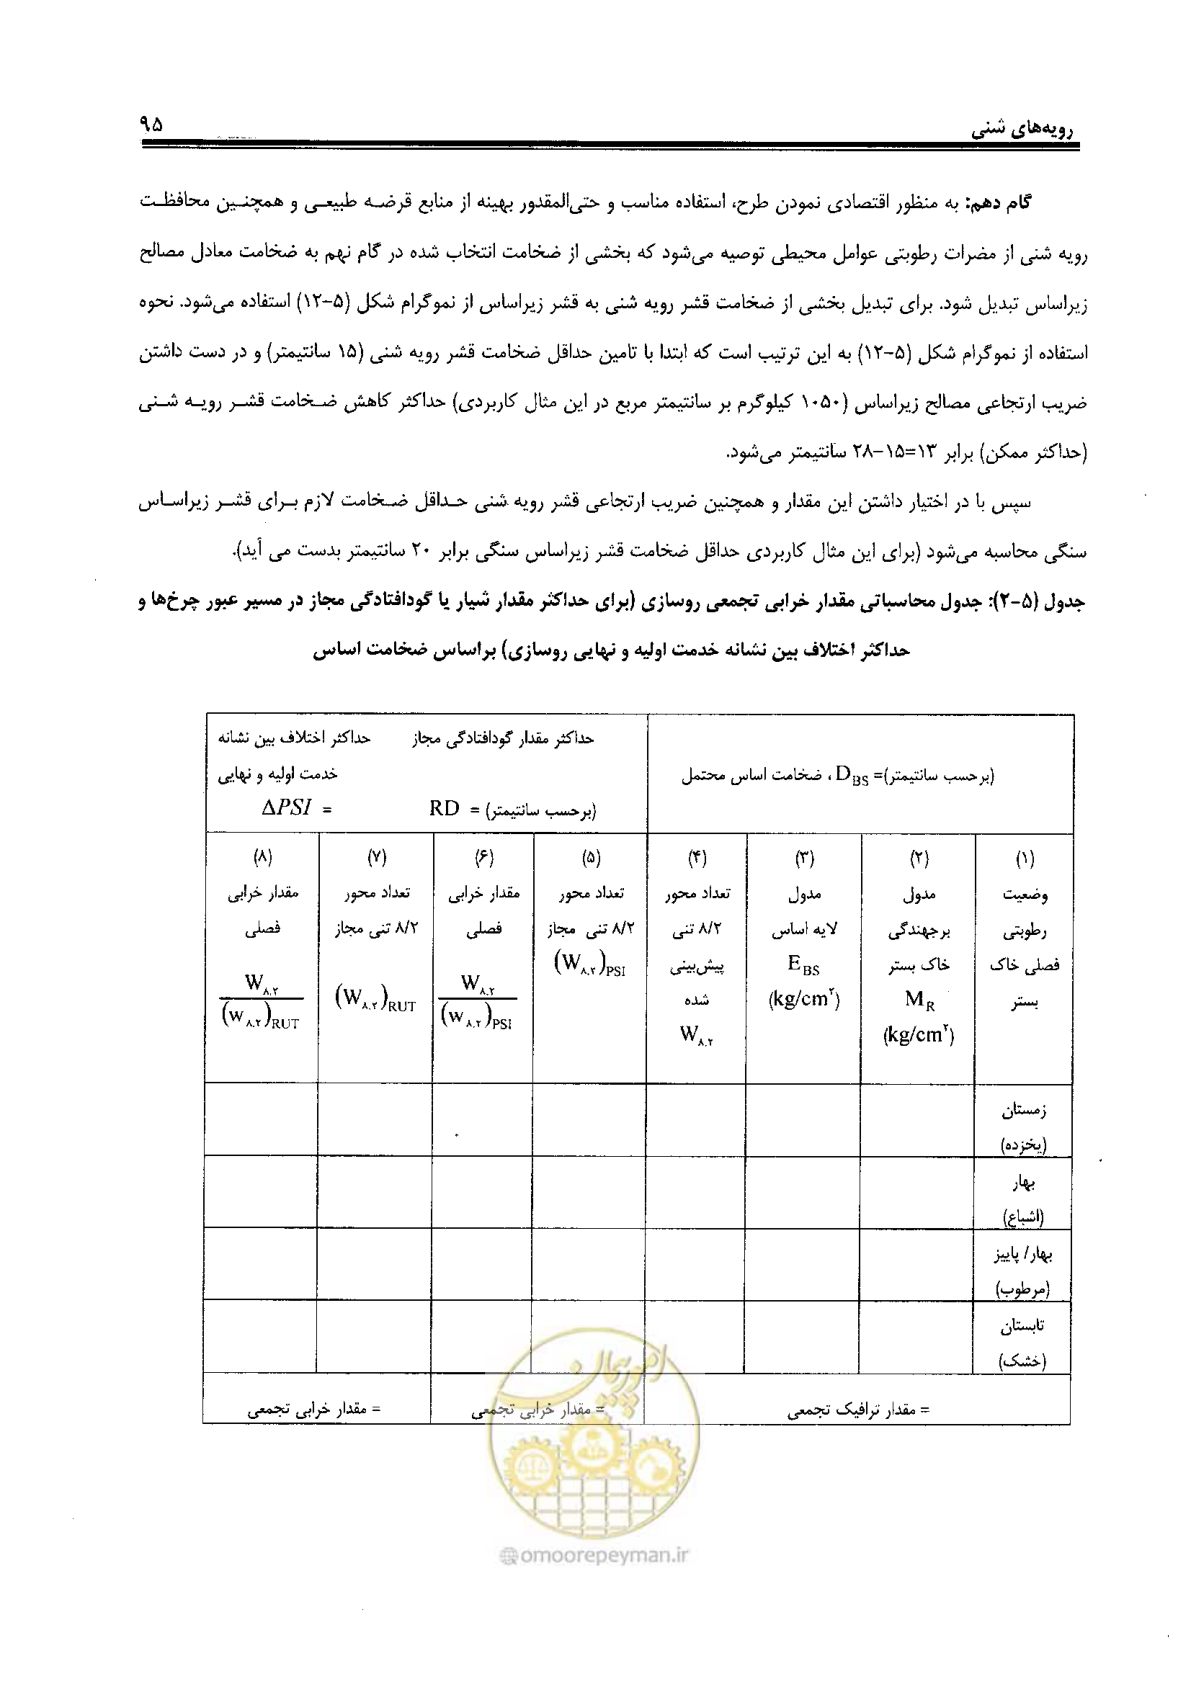 رویه‌های شنی
۹۵
گام دهم: به منظور اقتصادی نمودن طرح، استفاده مناسب و حتی‌المقدور بهینه از منابع قرضه طبیعی و همچنین محافظت
رویه شنی از مضرات رطوبتی عوامل محیطی توصیه می‌شود که بخشی از ضخامت انتخاب شده در گام نهم به ضخامت معادل مصالح
زیراساس تبدیل شود. برای تبدیل بخشی از ضخامت قشر رویه شنی به قشر زیراساس از نموگرام شکل (۵-۱۲) استفاده می‌شود. نحوه
استفاده از نموگرام شکل (۵-۱۲) به این ترتیب است که ابتدا با تامین حداقل ضخامت قشر رویه شنی (۱۵ سانتیمتر) و در دست داشتن
ضریب ارتجاعی مصالح زیراساس (۱۰۵۰ کیلوگرم بر سانتیمتر مربع در این مثال کاربردی) حداکثر کاهش ضخامت قشر رویه شنی
(حداکثر ممکن) برابر ۱۳=۱۵-۲۸ سانتیمتر می‌شود.
سپس با در اختیار داشتن این مقدار و همچنین ضریب ارتجاعی قشر رویه شنی حداقل ضخامت لازم برای قشر زیراساس
سنگی محاسبه می‌شود (برای این مثال کاربردی حداقل ضخامت قشر زیراساس سنگی برابر ۲۰ سانتیمتر بدست می آید).
جدول (۵-۲): جدول محاسباتی مقدار خرابی تجمعی روسازی (برای حداکثر مقدار شیار یا گودافتادگی مجاز در مسیر عبور چرخ‌ها و
حداکثر اختلاف بین نشانه خدمت اولیه و نهایی روسازی) براساس ضخامت اساس
(برحسب سانتیمتر)= D_BS ، ضخامت اساس محتمل
حداکثر مقدار گودافتادگی مجاز
(برحسب سانتیمتر) = RD
حداکثر اختلاف بین نشانه
خدمت اولیه و نهایی
ΔPSI =
(۱)
وضعیت
رطوبتی
فصلی خاک
بستر
(۲)
مدول
برجهندگی
خاک بستر
M_R
(kg/cm^۲)
(۳)
مدول
لایه اساس
E_BS
(kg/cm^۲)
(۴)
تعداد محور
۸/۲ تنی
پیش‌بینی
شده
W_۸.۲
(۵)
تعداد محور
۸/۲ تنی مجاز
(W_۸.۲)_PSI
(۶)
مقدار خرابی
فصلی
W_۸.۲
(W_۸.۲)_PSI
(۷)
تعداد محور
۸/۲ تنی مجاز
(W_۸.۲)_RUT
(۸)
مقدار خرابی
فصلی
W_۸.۲
(W_۸.۲)_RUT
زمستان
(یخزده)
بهار
(اشباع)
بهار/ پاییز
(مرطوب)
تابستان
(خشک)
= مقدار ترافیک تجمعی
= مقدار خرابی تجمعی
= مقدار خرابی تجمعی
امور پیمان
@omoorepeyman.ir